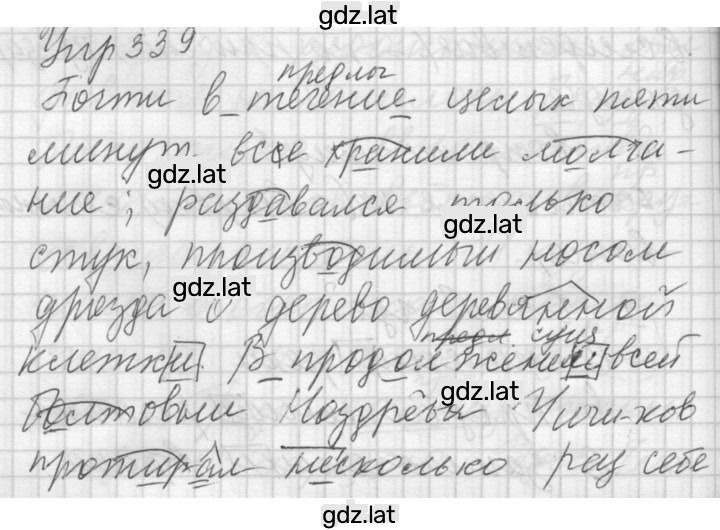 gdz.lat
Упр 339
предлог
Почти в течение целых пяти
минут все хранили молча-
gdz.lat
ние; раздавался только
gdz.lat
стук, производимый носом
gdz.lat
дрозда о дерево деревянной
предл сущ
клетки. В продолжении всей
gdz.lat
болтовни Ноздрёвы Чичиков
протирал несколько раз себе
gdz.lat